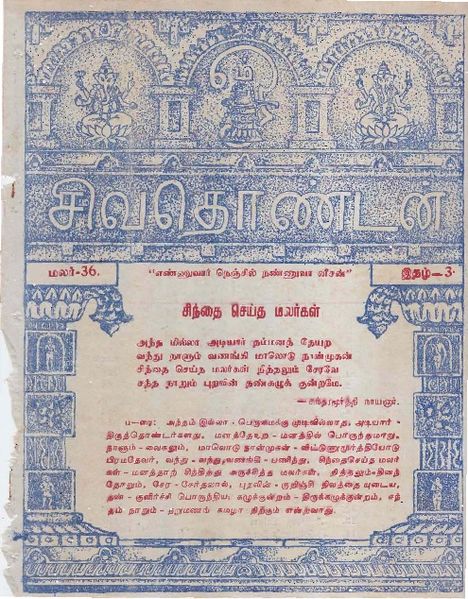 சிவதொண்டன்
மலர்-36. "எண்ணுவார் நெஞ்சில் நண்ணுவா னீசன்" இதழ்—3.
சிந்தை செய்த மலர்கள்
அந்த மில்லா அடியார் தம்மனத் தேயுற
வந்து நாளும் வணங்கி மாலொடு நான்முகன்
சிந்தை செய்த மலர்கள் நித்தலும் சேரவே
சந்த நாறும் புறவின் தண்கழுக் குன்றமே.
—சுந்தரமூர்த்தி நாயனார்.
ப—ரை: அந்தம் இல்லா - பெருமைக்கு முடிவில்லாத, அடியார் -
திருத்தொண்டர்களது, மனத்தேயுற - மனத்தில் பொருந்துமாறு,
நாளும் - வைகலும், மாலொடு நான்முகன் - விட்டுணுமூர்த்தியோடு
பிரமதேவர், வந்து - வந்து, வணங்கி - பணிந்து, சிந்தைசெய்த மலர்
கள் - மனத்தாற் சிந்தித்து அருச்சித்த மலர்கள், நித்தலும்-தினந்
தோறும், சேர - சேர்தலால், புறவின் - குறிஞ்சி நிலத்தை யுடைய,
தண் - குளிர்ச்சி பொருந்திய, கழுக்குன்றம் - திருக்கழுக்குன்றம், சந்
தம் நாறும் - நறுமணங் கமழா நிற்கும் என்றவாறு.